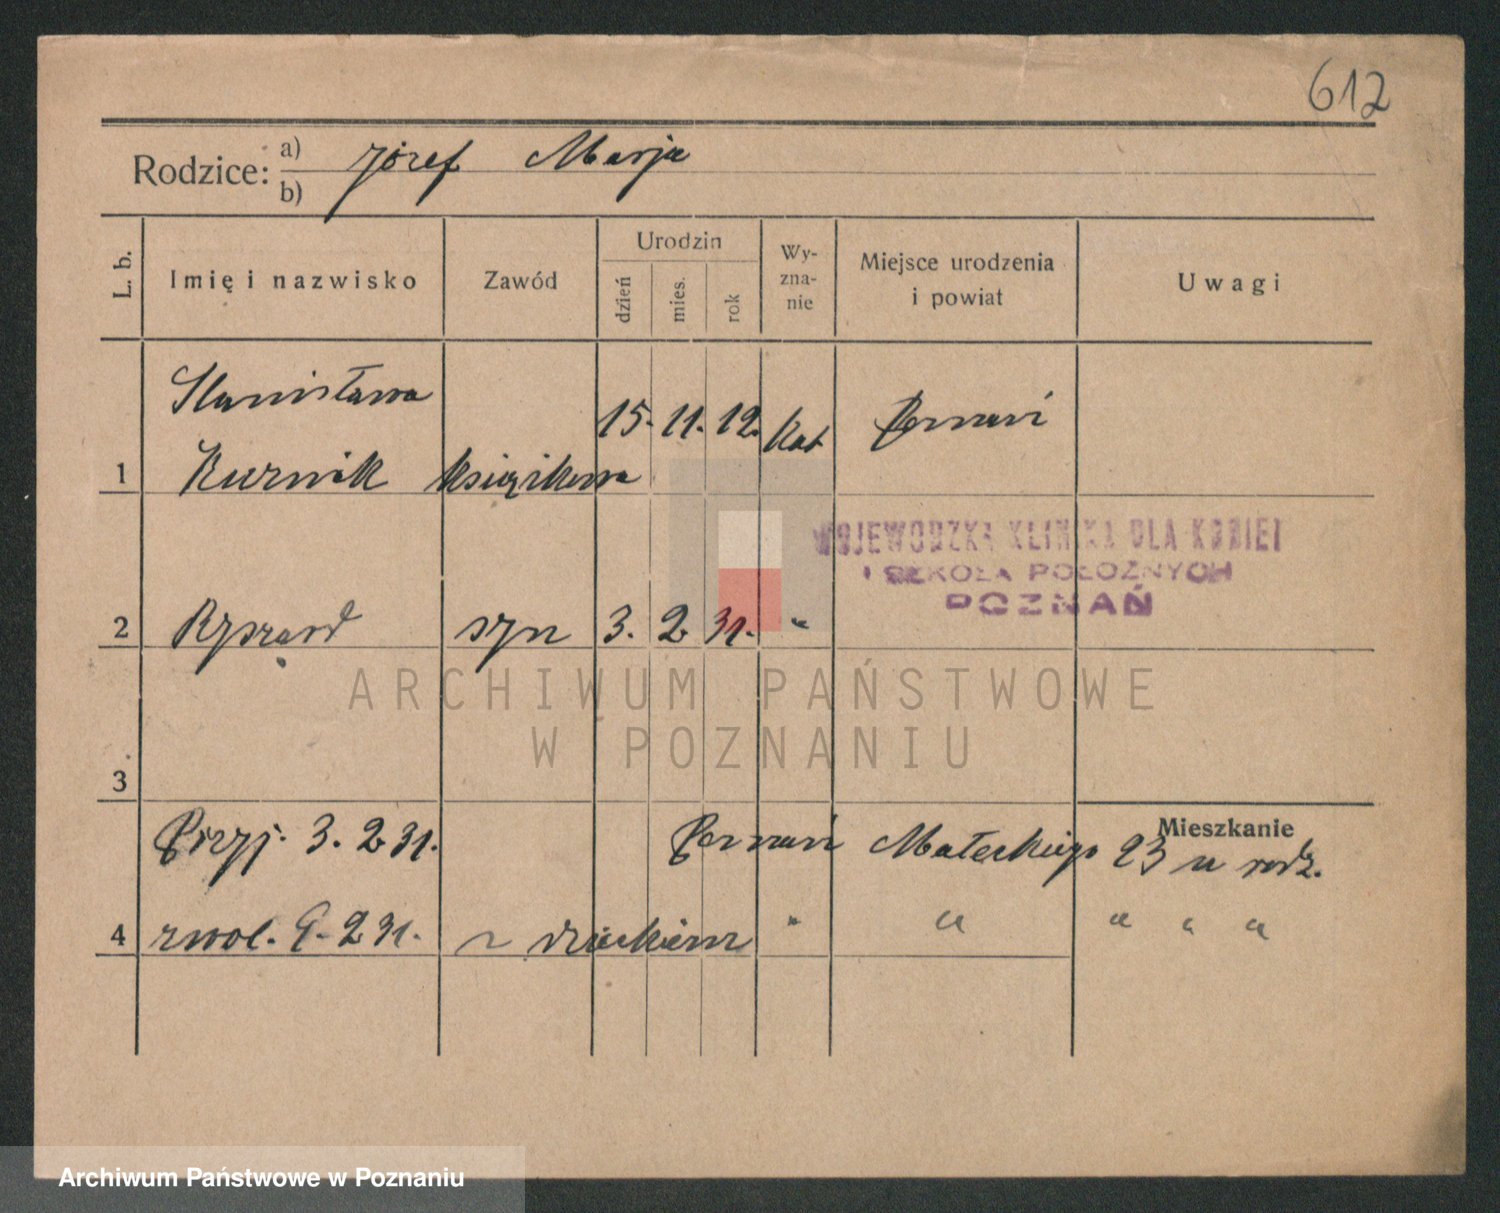 612
Rodzice: a) Józef Marja
b)
L. b. Imię i nazwisko Zawód Urodzin dzień mies. rok Wy-zna-nie Miejsce urodzenia i powiat Uwagi
Stanisława
15. 11. 12. Kat Poznań
1 Kuźnik
WOJEWÓDZKA KLINIKA DLA KOBIET
I SZKOŁA POŁOŻNYCH
POZNAŃ
2 Ryszard syn 3. 2. 31. "
ARCHIWUM PAŃSTWOWE
W POZNANIU
3
Mieszkanie
Przyj. 3. 2 31. Poznań Małeckiego 23 u rodz.
4 zwol. 9. 2 31. z dzieckiem " " " " "
Archiwum Państwowe w Poznaniu